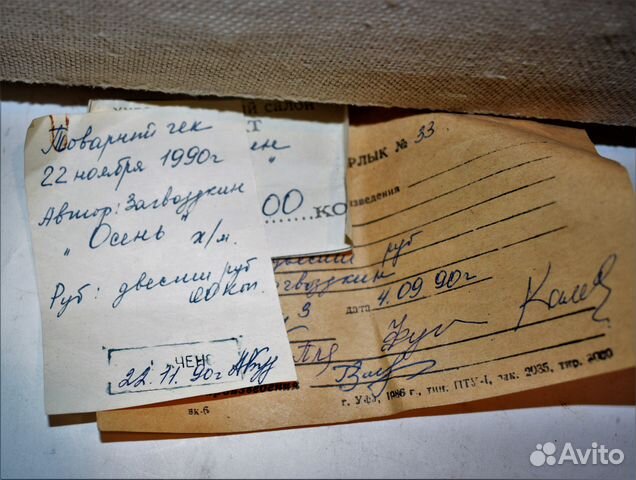 Товарный чек
22 ноября 1990г
Автор: Загвоздкин
"Осень" х/м.
Руб: двести руб
00 коп.
ЧЕНО
22.11.90г
й салон
00 КО
РЛЫК № 33.
изведения
двести руб
гвоздкин
3 дата 4.09 90г
г. Уфа, 1986 г., тип. ПТУ-1, зак. 2035, тир. 2000
вк-6
Avito